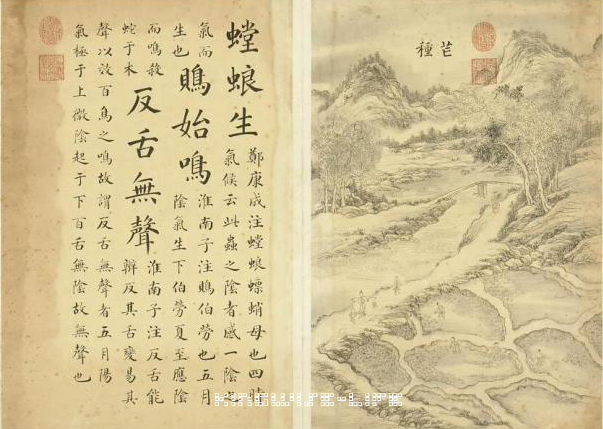 芒種
螳螂生
鄭康成注螳螂螵蛸母也四時
氣候云此蟲之陰者感一陰之
氣而
生也
鵙始鳴
淮南子注鵙伯勞也五月
陰氣生下伯勞夏至應陰
而鳴殺
蛇于木
反舌無聲
淮南子注反舌能
辦反其舌變易其
聲以效百鳥之鳴故謂反舌無聲者五月陽
氣極于上微陰起于下百舌無陰故無聲也